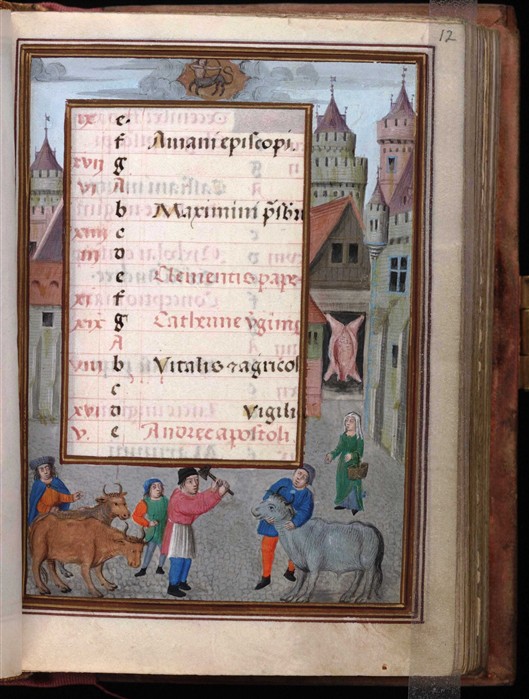 12
ix e
f Aniani episcopi
xvij g
vi A
b Maximini p̄sbri
xiiij c
iij d
e Clementis pape
xi f
xix g Catherine v̄ginis
A
viij b Vitalis ⁊ agricol
c
xvi d Vigilia
v. e Andree apostoli